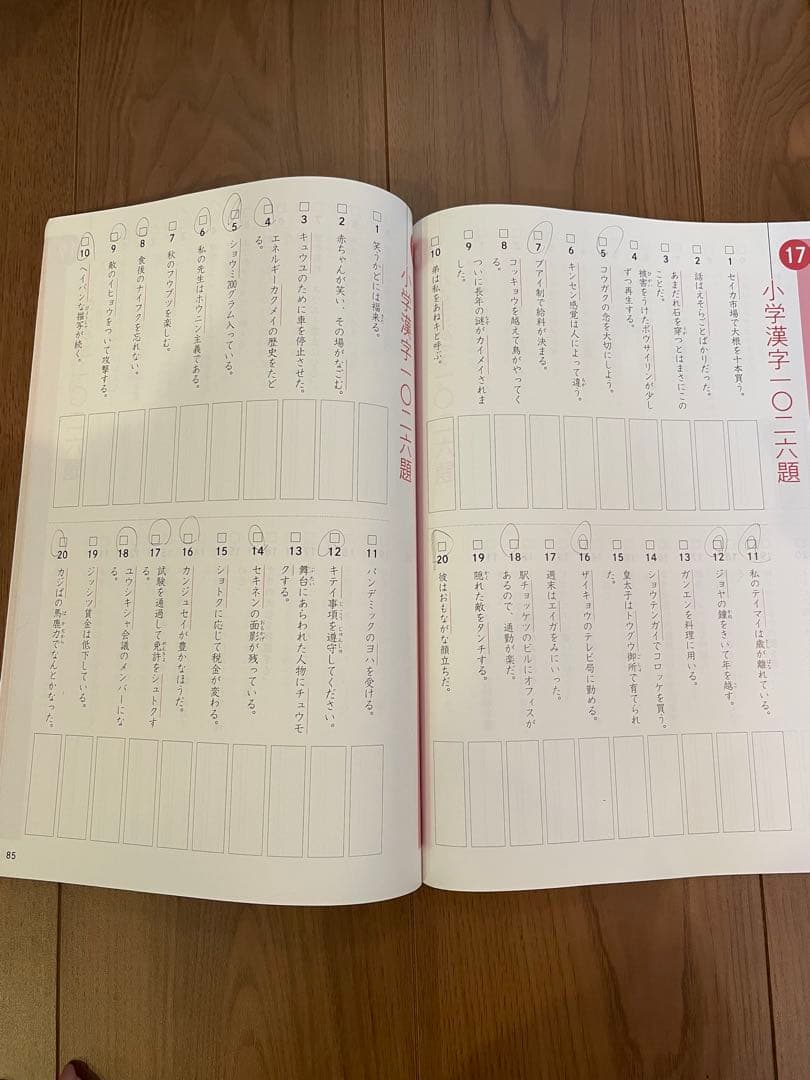 17
小学漢字一〇二六題
1 セイカ市場で大根を十本買う。
2 話はえそらごとばかりだった。
3 あまだれ石を穿つとはまさにこの
ことだ。
4 被害をうけたボウサイリンが少し
ずつ再生する。
5 コウガクの念を大切にしよう。
6 キンセン感覚は人によって違う。
7 ブアイ制で給料が決まる。
8 コッキョウを越えて鳥がやってく
る。
9 ついに長年の謎がカイメイされま
した。
10 弟は私をあねキと呼ぶ。
11 私のテイマイは歳が離れている。
12 ジョヤの鐘をきいて年を越す。
13 ガンエンを料理に用いる。
14 ショウテンガイでコロッケを買う。
15 皇太子はトウグウ御所で育てられ
た。
16 ザイキョウのテレビ局に勤める。
17 週末はエイガをみにいった。
18 駅チョッケツのビルにオフィスが
あるので、通勤が楽だ。
19 隠れた敵をタンチする。
20 彼はおもながな顔立ちだ。
小学漢字一〇二六題
1 笑うかどには福来る。
2 赤ちゃんが笑い、その場がなごむ。
3 キュウユのために車を停止させた。
4 エネルギーカクメイの歴史をたど
る。
5 ショウミ200グラム入っている。
6 私の先生はホウニン主義である。
7 秋のフウブツを楽しむ。
8 食後のナイフクを忘れない。
9 敵のイヒョウをついて攻撃する。
10 ヘイバンな描写が続く。
11 パンデミックのヨハを受ける。
12 キテイ事項を遵守してください。
13 舞台にあらわれた人物にチュウモ
クする。
14 セキネンの面影が残っている。
15 ショトクに応じて税金が変わる。
16 カンジュセイが豊かなほうだ。
17 試験を通過して免許をシュトクす
る。
18 ユウシキシャ会議のメンバーにな
る。
19 ジッシツ賃金は低下している。
20 カジばの馬鹿力でなんとかなった。
85